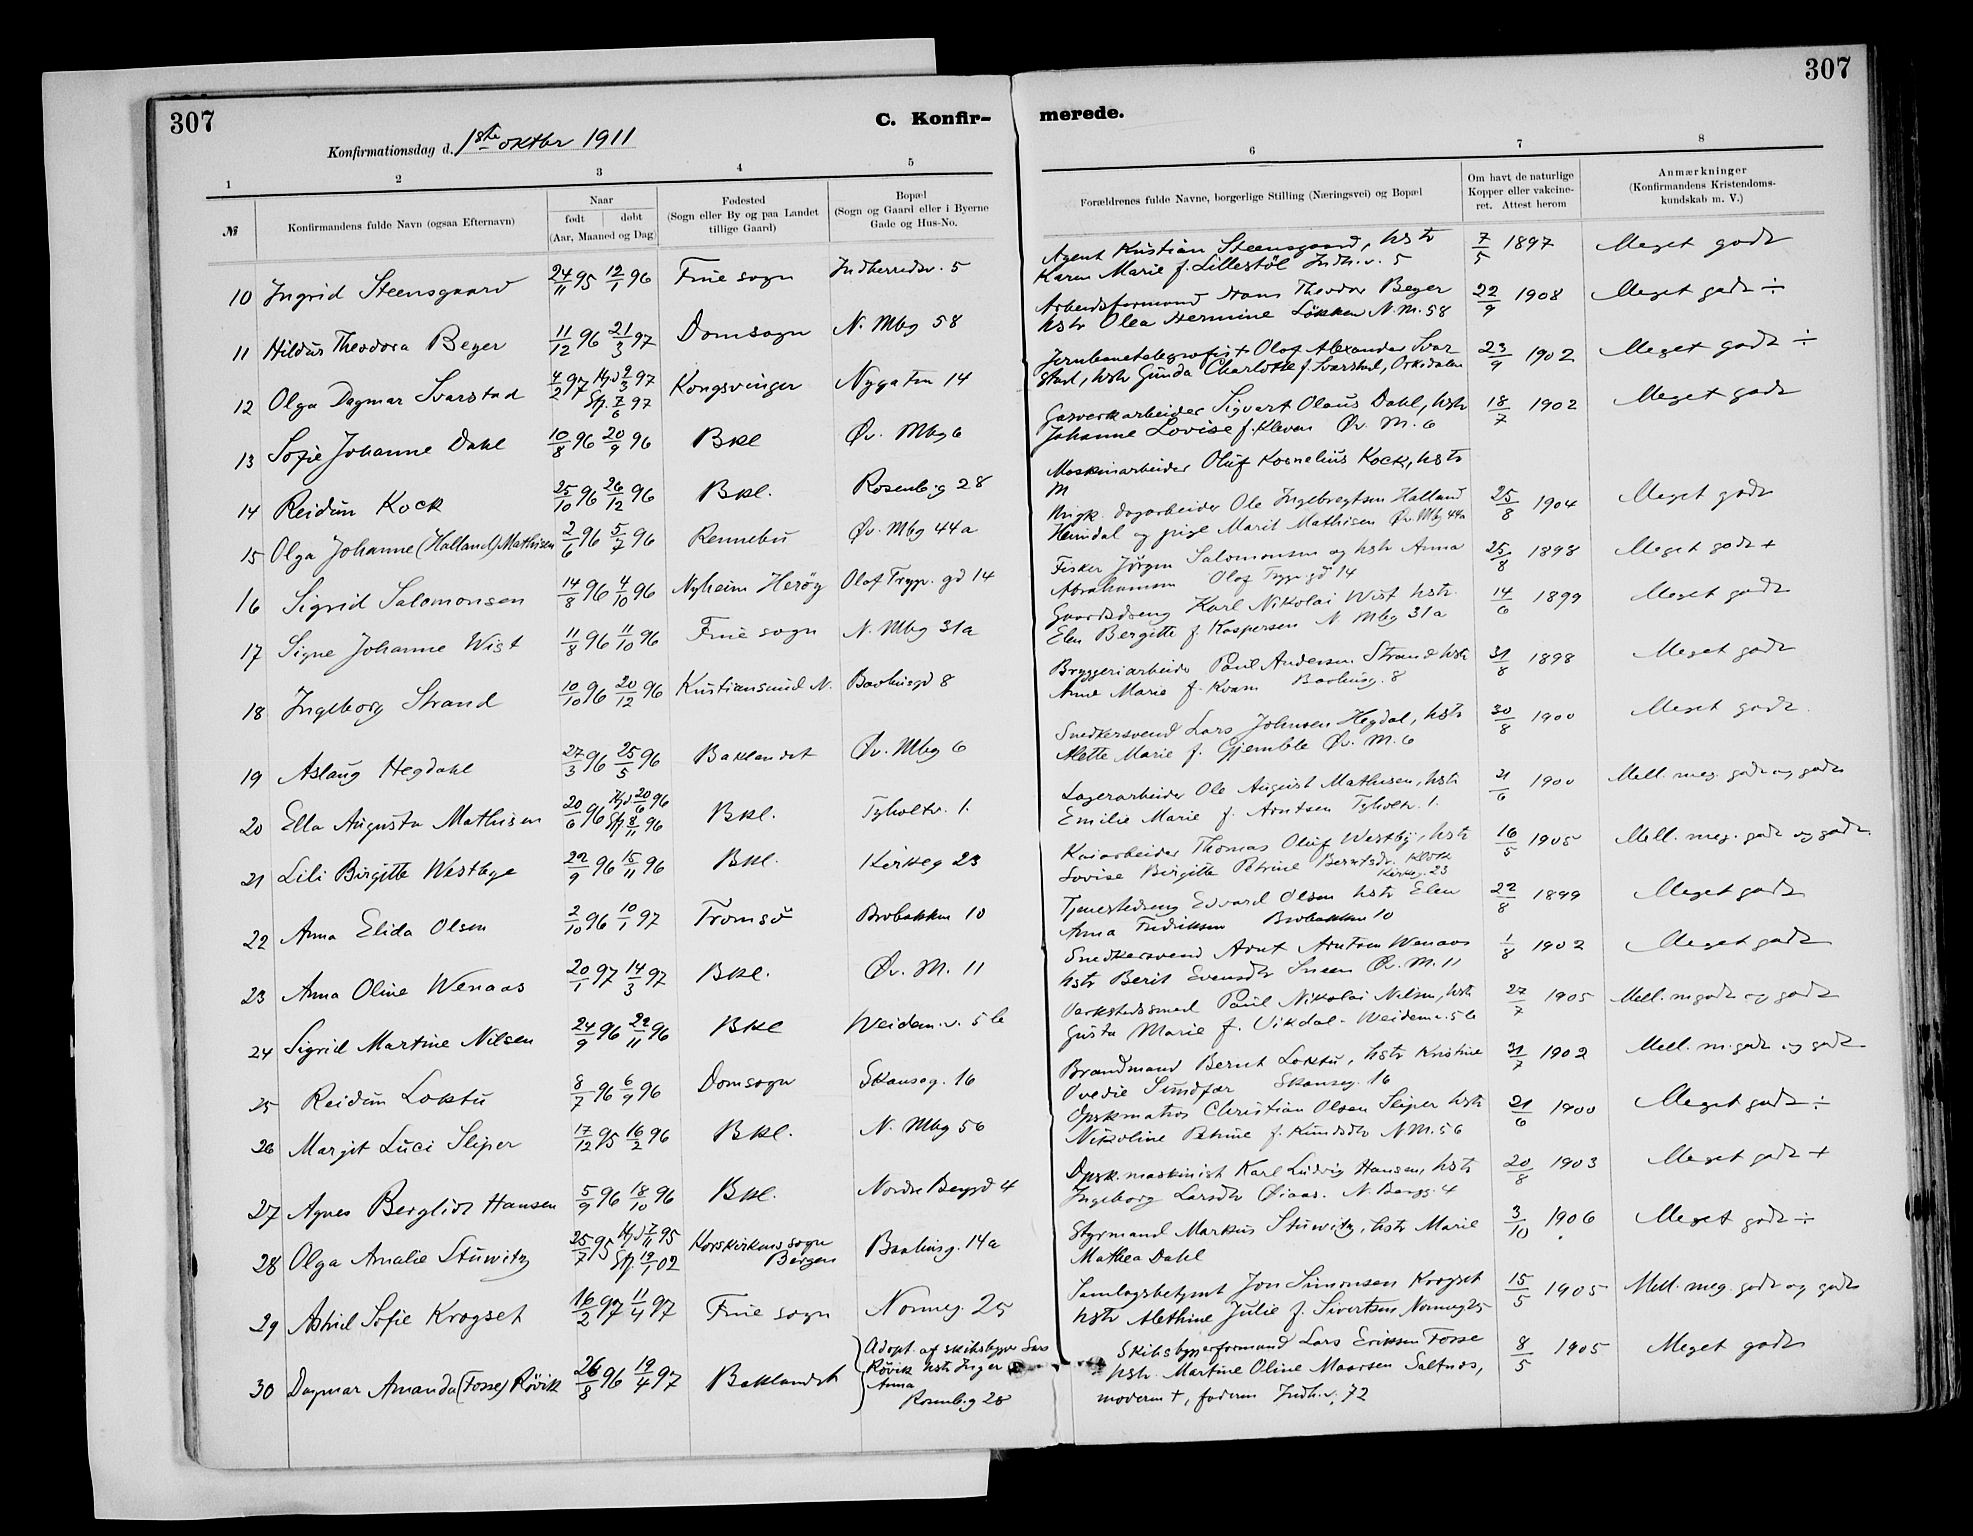 307
307
C. Konfir-
merede.
Konfirmationsdag d. 1ste oktbr 1911
1 2 3 4 5 6 7 8
№
Konfirmandens fulde Navn (ogsaa Efternavn)
Naar
født døbt
(Aar, Maaned og Dag)
Fødested
(Sogn eller By og paa Landet
tillige Gaard)
Bopæl
(Sogn og Gaard eller i Byerne
Gade og Hus-No.
Forældrenes fulde Navne, borgerlige Stilling (Næringsvei) og Bopæl
Om havt de naturlige
Kopper eller vakcine-
ret. Attest herom
Anmærkninger
(Konfirmandens Kristendoms-
kundskab m. V.)
10 Ingrid Steensgaard 24/11 95 12/1 96 Frue sogn Indherredsv. 5
Agent Kristian Steensgaard, hstr 7/5 1897 Meget godt
Karen Marie f. Lillestöl Indh.v. 5
11 Hildur Theodora Beyer 11/12 96 21/3 97 Domsogn N. Mbg 58
Arbeidsformand Hans Theodor Beyer 22/9 1908 Meget godt ÷
hstr Olea Hermine Lökken N. M. 58
12 Olga Dagmar Svarstad 4/2 97 Hjd 2/3 97 Kongsvinger Nygaten 14
Stf. 7/6 97
Jernbanetelegrafist Olof Alexander Svar 23/9 1902 Meget godt ÷
stad, hstr Gunda Charlotte f. Svarstad, Orkdalen
13 Sofie Johanne Dahl 10/8 96 20/9 96 Bkl Øv. Mbg 6
Gasverkarbeider Sigvart Olaus Dahl, hstr 18/7 1902 Meget godt
Johanne Lovise f. Kleven Øv. M. 6
14 Reidun Kock 25/10 96 26/12 96 Bkl. Rosenb.g 28
Maskinarbeider Oluf Kornelius Kock, hstr
M
15 Olga Johanne (Halland) Mathisen 2/6 96 5/7 96 Rennebu Øv. Mbg 44a
Ungk. dagarbeider Ole Ingebregtsen Halland 25/8 1904 Meget godt
Heimdal og pige Marit Mathisen Øv. Mbg 44a
16 Sigrid Salomonsen 14/8 96 4/10 96 Nyheim Herøy Olaf Tryg. gd 14
Fisker Jørgen Salomonsen og hstr Anna 25/8 1898 Meget godt +
Abrahamsen Olaf Tryg. gd 14
17 Signe Johanne Wist 11/8 96 11/10 96 Frue sogn N. Mbg 31a
Gaardsdreng Karl Nikolai Wist hstr. 14/6 1899 Meget godt
Elen Bergitte f. Kaspersen N Mbg 31a
18 Ingeborg Strand 10/10 96 20/12 96 Kristiansund N. Baahusgd 8
Bryggeriarbeider Paul Andersen Strand hstr 31/8 1898 Meget godt
Anne Marie f. Kvam Baahusg. 8
19 Aslaug Hegdahl 27/3 96 25/5 96 Baklandet Øv. Mbg 6
Snedkersvend Lars Johnsen Hegdal, hstr 30/8 1900 Meget godt.
Mette Marie f. Gjemble Øv. M. 6
20 Ella Augusta Mathisen 20/6 96 Hjd 20/6 96 Bkl. Tyholtv. 1.
Stf 8/11 96
Lagerarbeider Ole August Mathisen, hstr 21/6 1900 Mell. meg. godt og godt
Emilie Marie f. Arntsen Tyholtv. 1.
21 Lili Birgitte Westbye 22/9 96 15/11 96 Bkl. Kirkeg 23
Kaiarbeider Thomas Oluf Westby, hstr 16/5 1905 Mell. meg. godt og godt
Lovise Birgitte Petrine Berntsdr. Klok
Kirkeg. 23
22 Anna Elida Olsen 2/10 96 10/1 97 Tromsö Brobakken 10
Tjenestedreng Edvard Olsen hstr Elen 22/8 1899 Meget godt
Anna Fredriksen Brobakken 10
23 Anna Oline Wenaas 20/1 97 14/3 97 Bkl. Øv. M. 11
Snedkersvend Arnt Arntsen Wenaas 1/8 1902 Meget godt
hstr Berit Evensdtr Sneen Øv. M. 11
24 Sigrid Martine Nilsen 24/9 96 22/11 96 Bkl Weidem.v. 5b
Verkstedssmed Paul Nikolai Nilsen, hstr 27/7 1905 Mell. m godt og godt
Gusta Marie f. Vikdal - Weidem.v. 5b
25 Reidun Loktu 8/7 96 6/9 96 Domsogn Skanseg. 16
Brandmand Bernt Loktu, hstr Kristine 31/7 1902 Mell. m. godt og godt
Ovedie Sundfær Skanseg. 16
26 Margit Luci Sliper 17/12 95 16/2 96 Bkl. N. Mbg 56
Dpskmatros Christian Olsen Sliper hstr 21/6 1900 Meget godt ÷
Nikoline Petrine f. Knudsdtr N M. 56
27 Agnes Bergliot Hansen 5/9 96 18/10 96 Bkl. Nordre Berggd 4
Dpsk. maskinist Karl Ludvig Hansen, hstr 20/8 1903 Meget godt +
Ingeborg Larsdtr Øiaas. N. Bergg. 4
28 Olga Amalie Stuwitz 25/7 95 Hjd 7/11 95 Korskirkens sogn Baahusg. 14a
Stf. 19/1 02 Bergen
Styrmand Markus Stuwitz, hstr Marie 3/10 1906 Meget godt ÷
Mathea Dahl
29 Astrid Sofie Krogset 16/2 97 11/4 97 Frue sogn Nonneg. 25
Samlagsbetjent Jon Simonsen Krogset 15/5 1905 Mell. meg. godt og godt
hstr Alethine Julie f. Sivertsen Nonneg 25
30 Dagmar Amanda (Fosse) Rövik 26/8 96 19/4 97 Baklandet
Adopt. af skibsbygger Lars
Rövik hstr Inger
Anna
Rosenb.g 28
Skibsbyggerformand Lars Eriksen Fosse 8/5 1905 Meget godt
hstr. Martine Oline Maarsen Saltnes,
moderen +, faderen Indh.v. 72